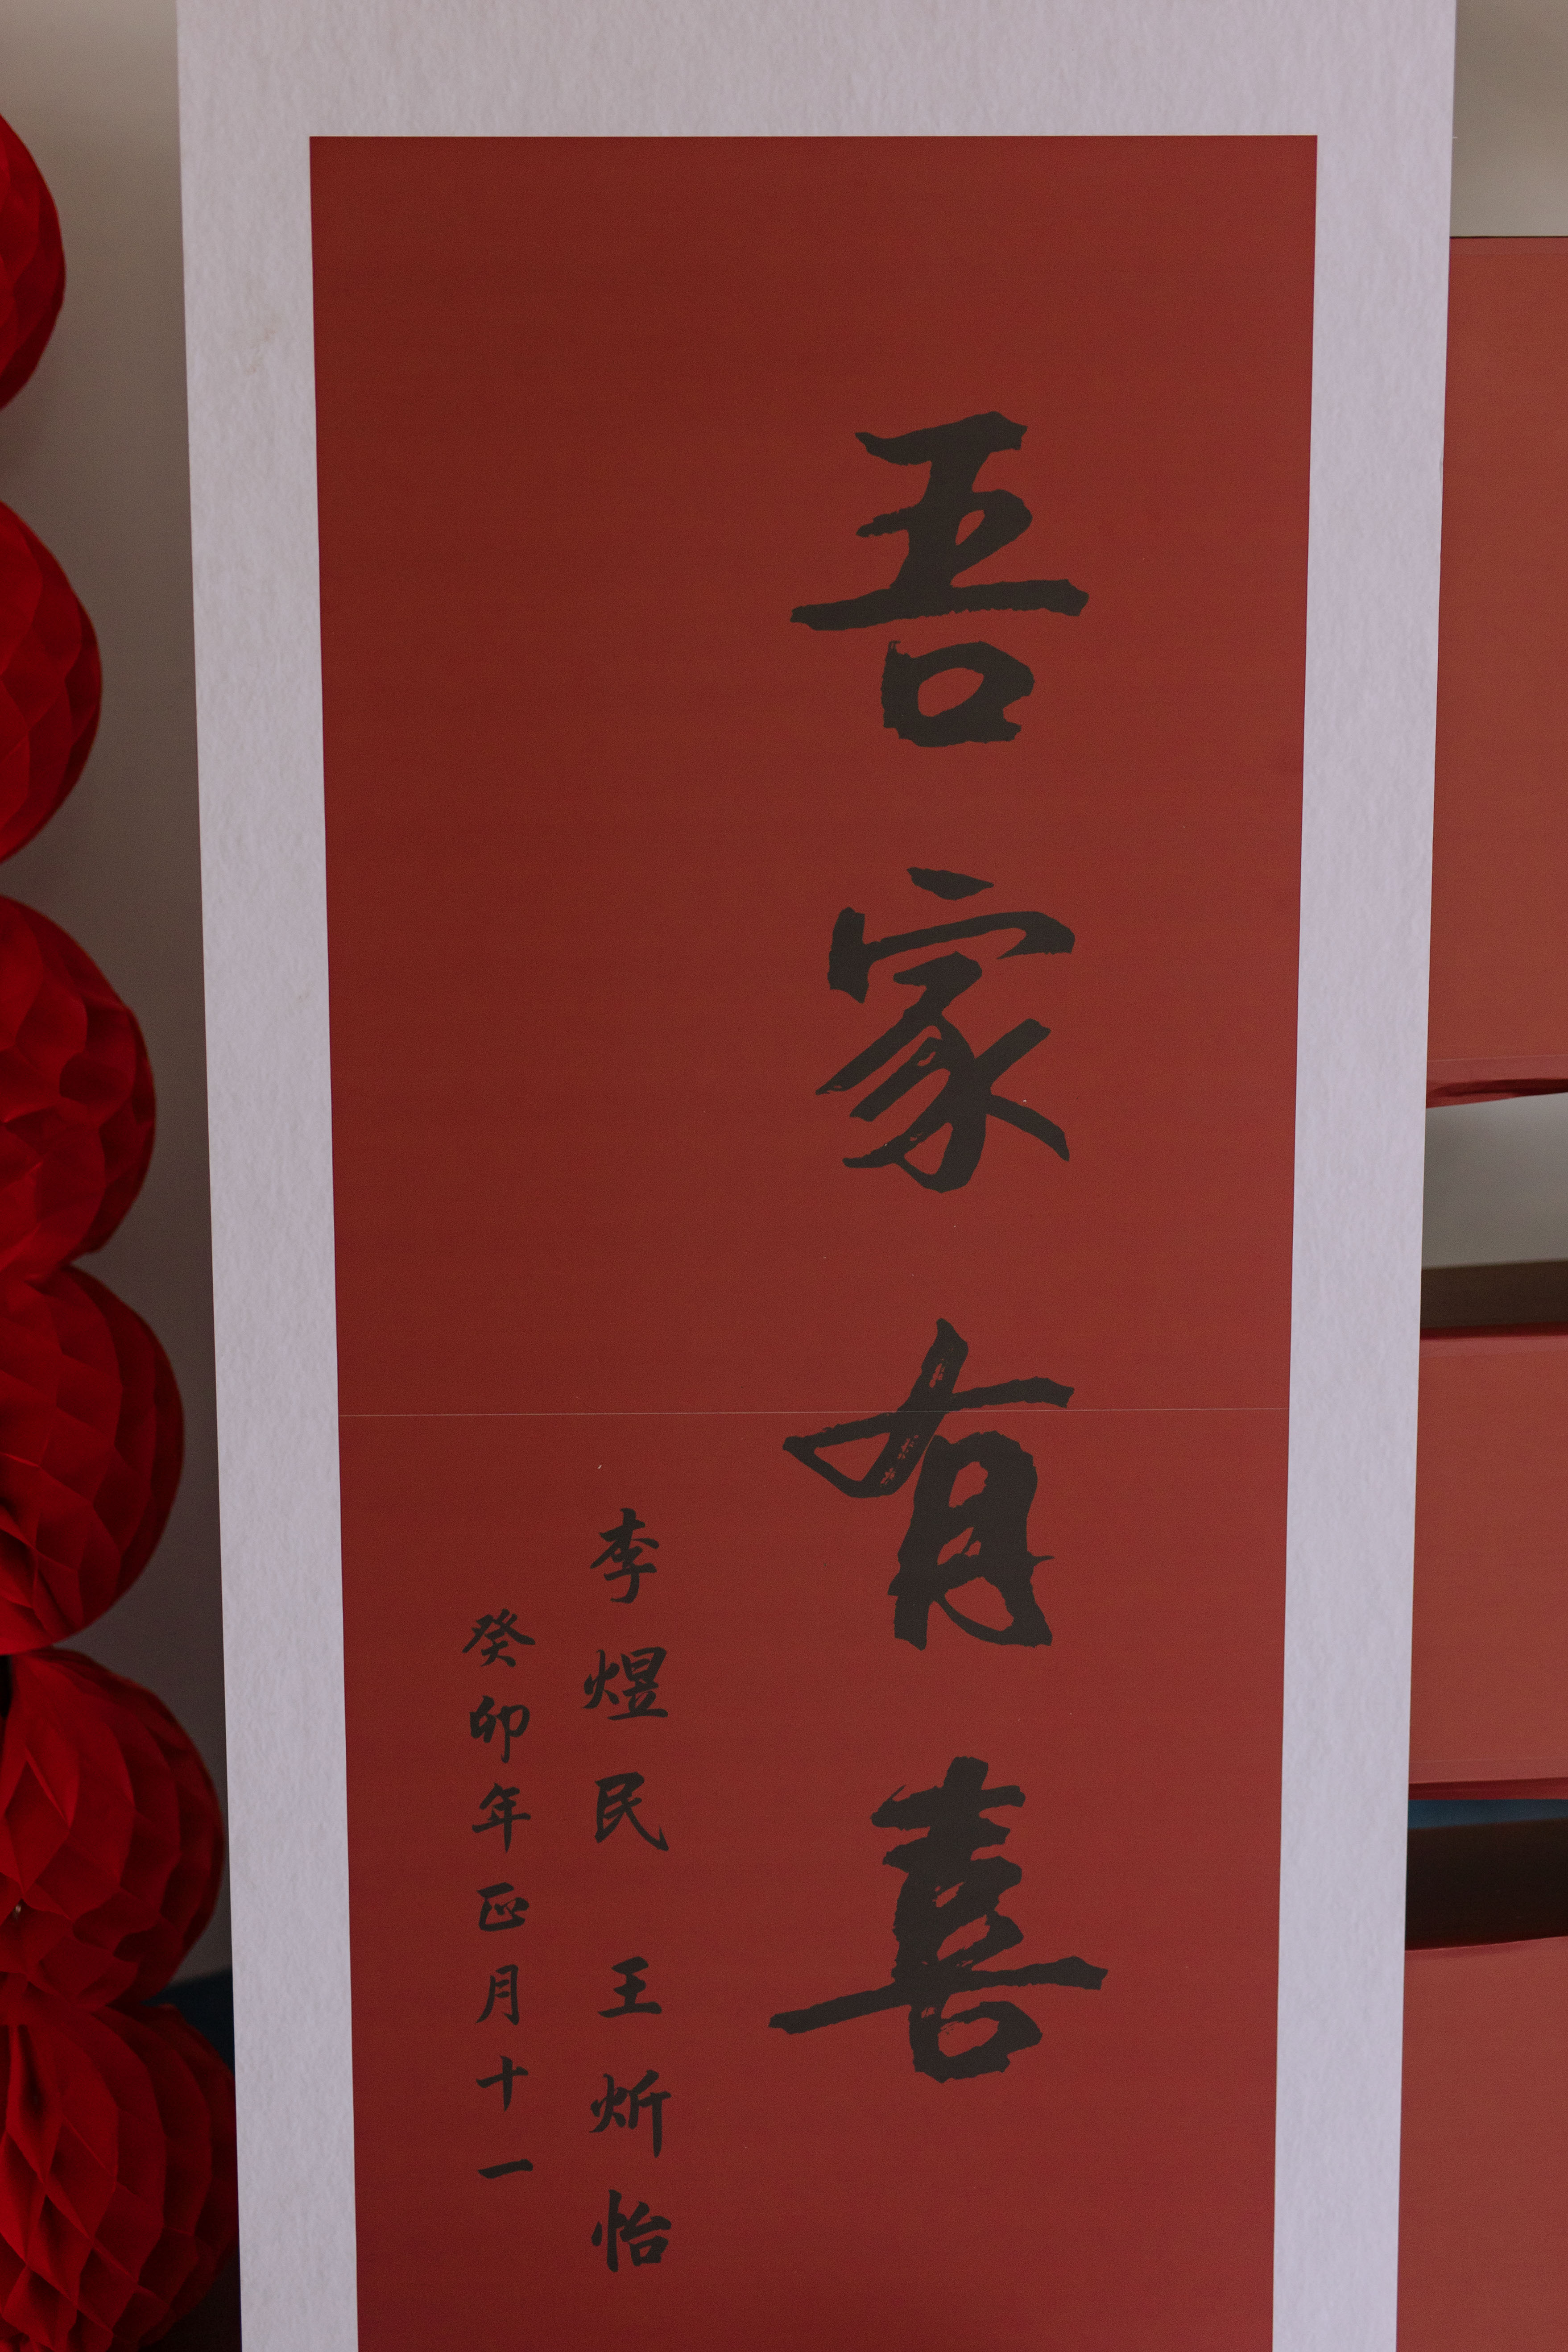 吾家有喜
李煜民 王炘怡
癸卯年正月十一